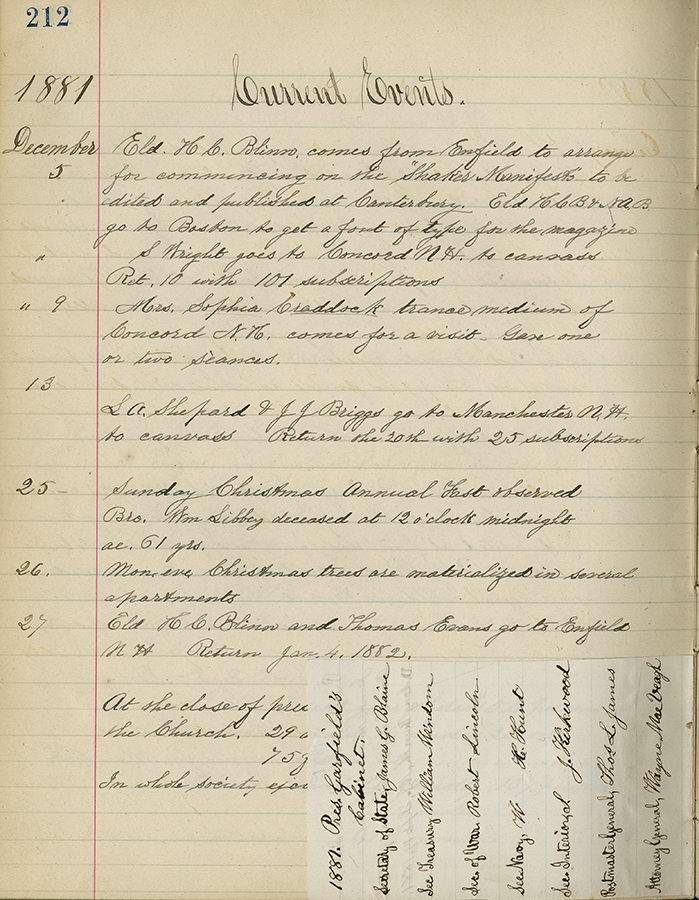 212
1881 Current Events.
December Eld. H C. Blinn, comes from Enfield to arrange
5 for commencing on the "Shaker Manifesto" to be
edited and published at Canterbury. Eld H C B & N A B
go to Boston to get a font of type for the magazine
" S Wright goes to Concord N H. to canvass
Ret. 10 with 101 subscriptions
" 9 Mrs. Sophia Craddock trance medium of
Concord N. H. comes for a visit. Gave one
or two sèances.
13
L A. Shepard & J J Briggs go to Manchester N. H.
to canvass Return the 20th with 25 subscriptions
25 - Sunday Christmas Annual Fast observed
Bro. Wm Libbey deceased at 12 o'clock midnight
ae. 61 yrs.
26. Mon. eve, Christmas trees are materialized in several
apartments
27 Eld H C. Blinn and Thomas Evans go to Enfield
N H Return Jan. 4. 1882.
At the close of
the Church. 29
75
In whole society
1881. Pres. Garfield's
Cabinet.
Secretary of State, James G. Blaine
Sec Treasury William Windom
Sec of War Robert Lincoln
Sec Navy, W H. Hunt
Sec Interioral J. Kirkwood
Postmaster General, Thos L. James
Attorney General, Wayne MacVeagh